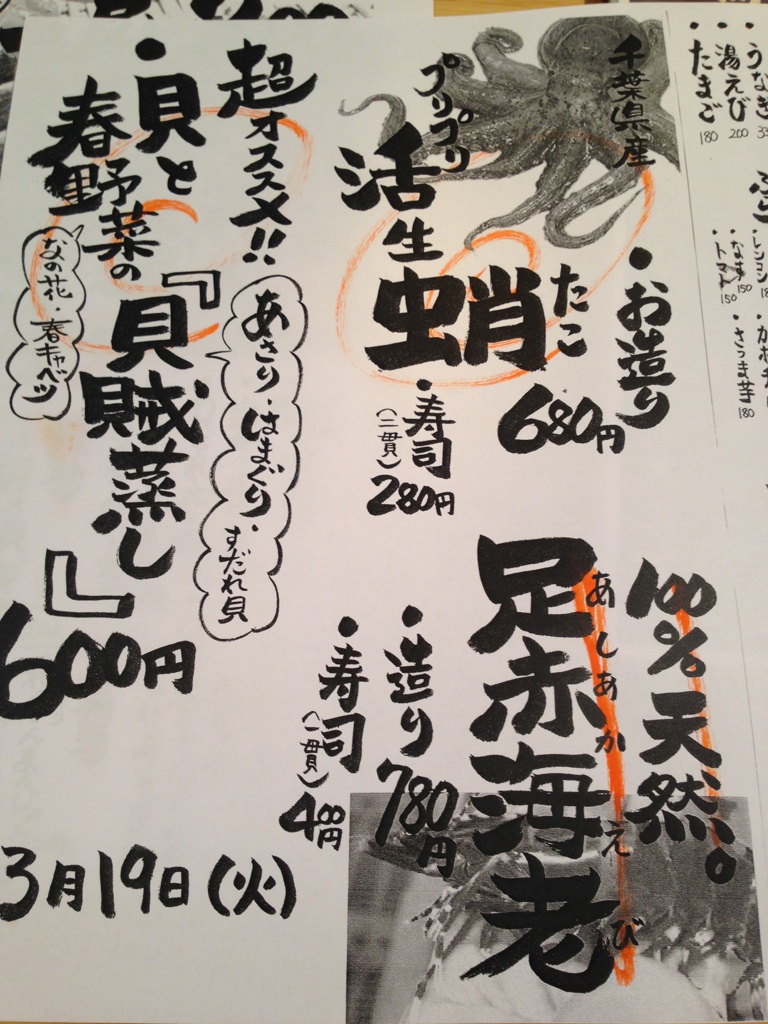 うなぎ 33
湯えび 200
たまご 180
レンコン
なす 150
トマト 150
さつま芋 180
千葉県産
プリプリ
活生蛸
たこ
・お造り
680円
・寿司
(二貫)
280円
100%天然。
足赤海老
あしあかえび
・造り
780円
・寿司
(一貫)
400円
超オススメ!!
・貝と
春野菜の
『貝賊蒸し』
600円
あさり・はまぐり・すだれ貝
なの花・春キャベツ
3月19日(火)